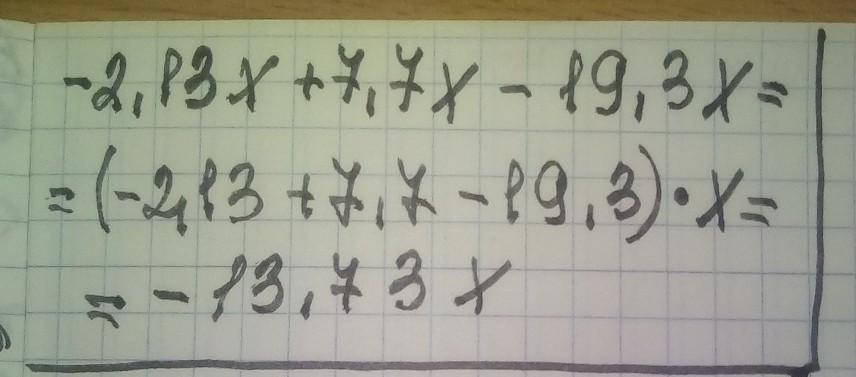 -2,13x+7,7x-19,3x=
=(-2,13+7,7-19,3)·x=
=-13,73x